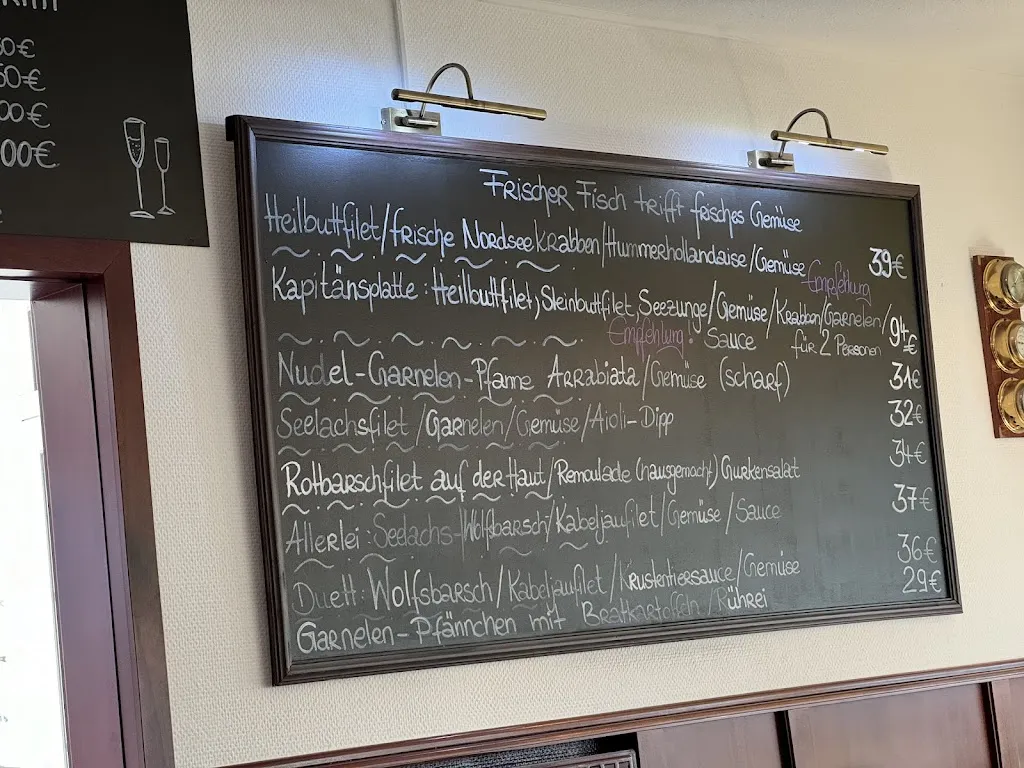 50€
50€
00€
00€
Frischer Fisch trifft frisches Gemüse
Heilbuttfilet/frische Nordseekrabben/Hummerhollandaise/Gemüse 39€
Empfehlung
Kapitänsplatte: Heilbuttfilet, Steinbuttfilet, Seezunge/Gemüse/Krabben/Garnelen/ 94€
Empfehlung! Sauce für 2 Personen
Nudel-Garnelen-Pfanne Arrabiata/Gemüse (scharf) 31€
Seelachsfilet/Garnelen/Gemüse/Aioli-Dipp 32€
34€
Rotbarschfilet auf der Haut/Remoulade (hausgemacht) Gurkensalat
37€
Allerlei: Seelachs-/Wolfsbarsch/Kabeljaufilet/Gemüse/Sauce
36€
Duett: Wolfsbarsch/Kabeljaufilet/Krustentiersauce/Gemüse
29€
Garnelen-Pfännchen mit Bratkartoffeln/Rührei